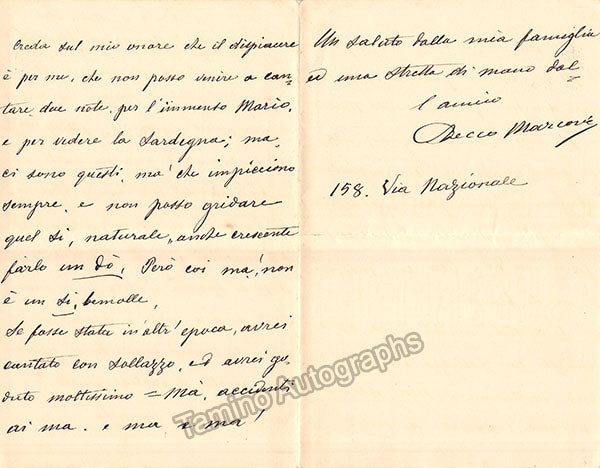 Creda sul mio onore che il dispiacere
è per me, che non posso venire a can=
tare due note, per l'immenso Mario,
e per vedere la Sardegna; ma,
ci sono questi, ma' che impicciono
sempre, e non posso gridare
quel Si, naturale, anche crescente
farlo un dò, Però coi ma', non
è un Si, bemolle,
Se fosse stata in altr' epoca, avrei
cantato con Sollazzo, ed avrei go=
duto moltissimo = Mà, accidenti
ai ma. e ma e ma!
Un saluto dalla mia famiglia
ed una stretta di mano dal=
l'amico
Checco Marconi
158. Via Nazionale
Tamino Autographs